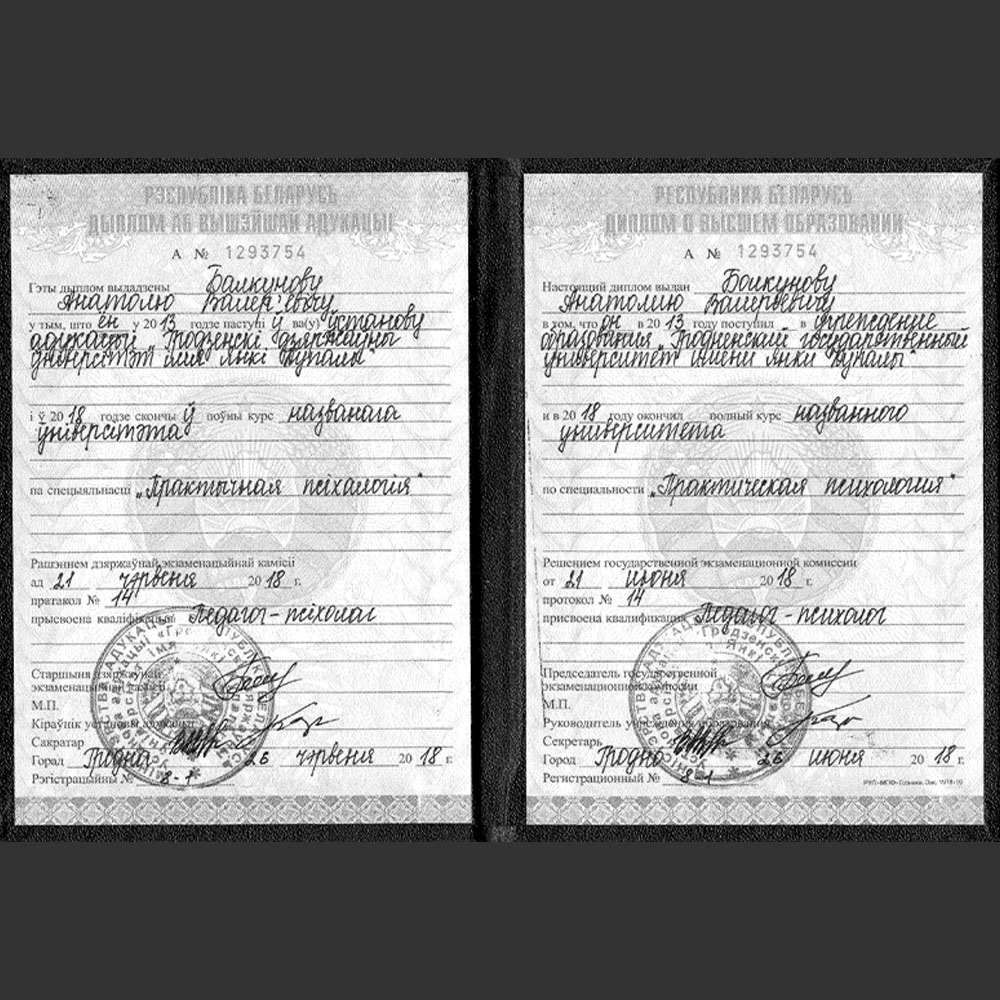 РЭСПУБЛІКА БЕЛАРУСЬ
ДЫПЛОМ АБ ВЫШЭЙШАЙ АДУКАЦЫІ
А № 1293754
Гэты дыплом выдадзены Балкунову
Анатолію Валер'евічу
у тым, што ён у 2013 годзе паступіў ва(у) установу
адукацыі "Гродзенскі дзяржаўны
ўніверсітэт імя Янкі Купалы"
і ў 2018 годзе скончыў поўны курс названага
ўніверсітэта
па спецыяльнасці "Практычная псіхалогія"
Рашэннем дзяржаўнай экзаменацыйнай камісіі
ад 21 чэрвеня 2018 г.
пратакол № 14
прысвоена кваліфікацыя Педагог-псіхолаг
Старшыня дзяржаўнай
экзаменацыйнай камісіі
М.П.
Кіраўнік установы адукацыі
Сакратар
Горад Гродна 26 чэрвеня 2018 г.
Рэгістрацыйны № 8-1
РЕСПУБЛИКА БЕЛАРУСЬ
ДИПЛОМ О ВЫСШЕМ ОБРАЗОВАНИИ
А № 1293754
Настоящий диплом выдан Болкунову
Анатолию Валерьевичу
в том, что он в 2013 году поступил в учреждение
образования "Гродненский государственный
университет имени Янки Купалы"
и в 2018 году окончил полный курс названного
университета
по специальности "Практическая психология"
Решением государственной экзаменационной комиссии
от 21 июня 2018 г.
протокол № 14
присвоена квалификация Педагог-психолог
Председатель государственной
экзаменационной комиссии
М.П.
Руководитель учреждения образования
Секретарь
Город Гродно 26 июня 2018 г.
Регистрационный № 8-1